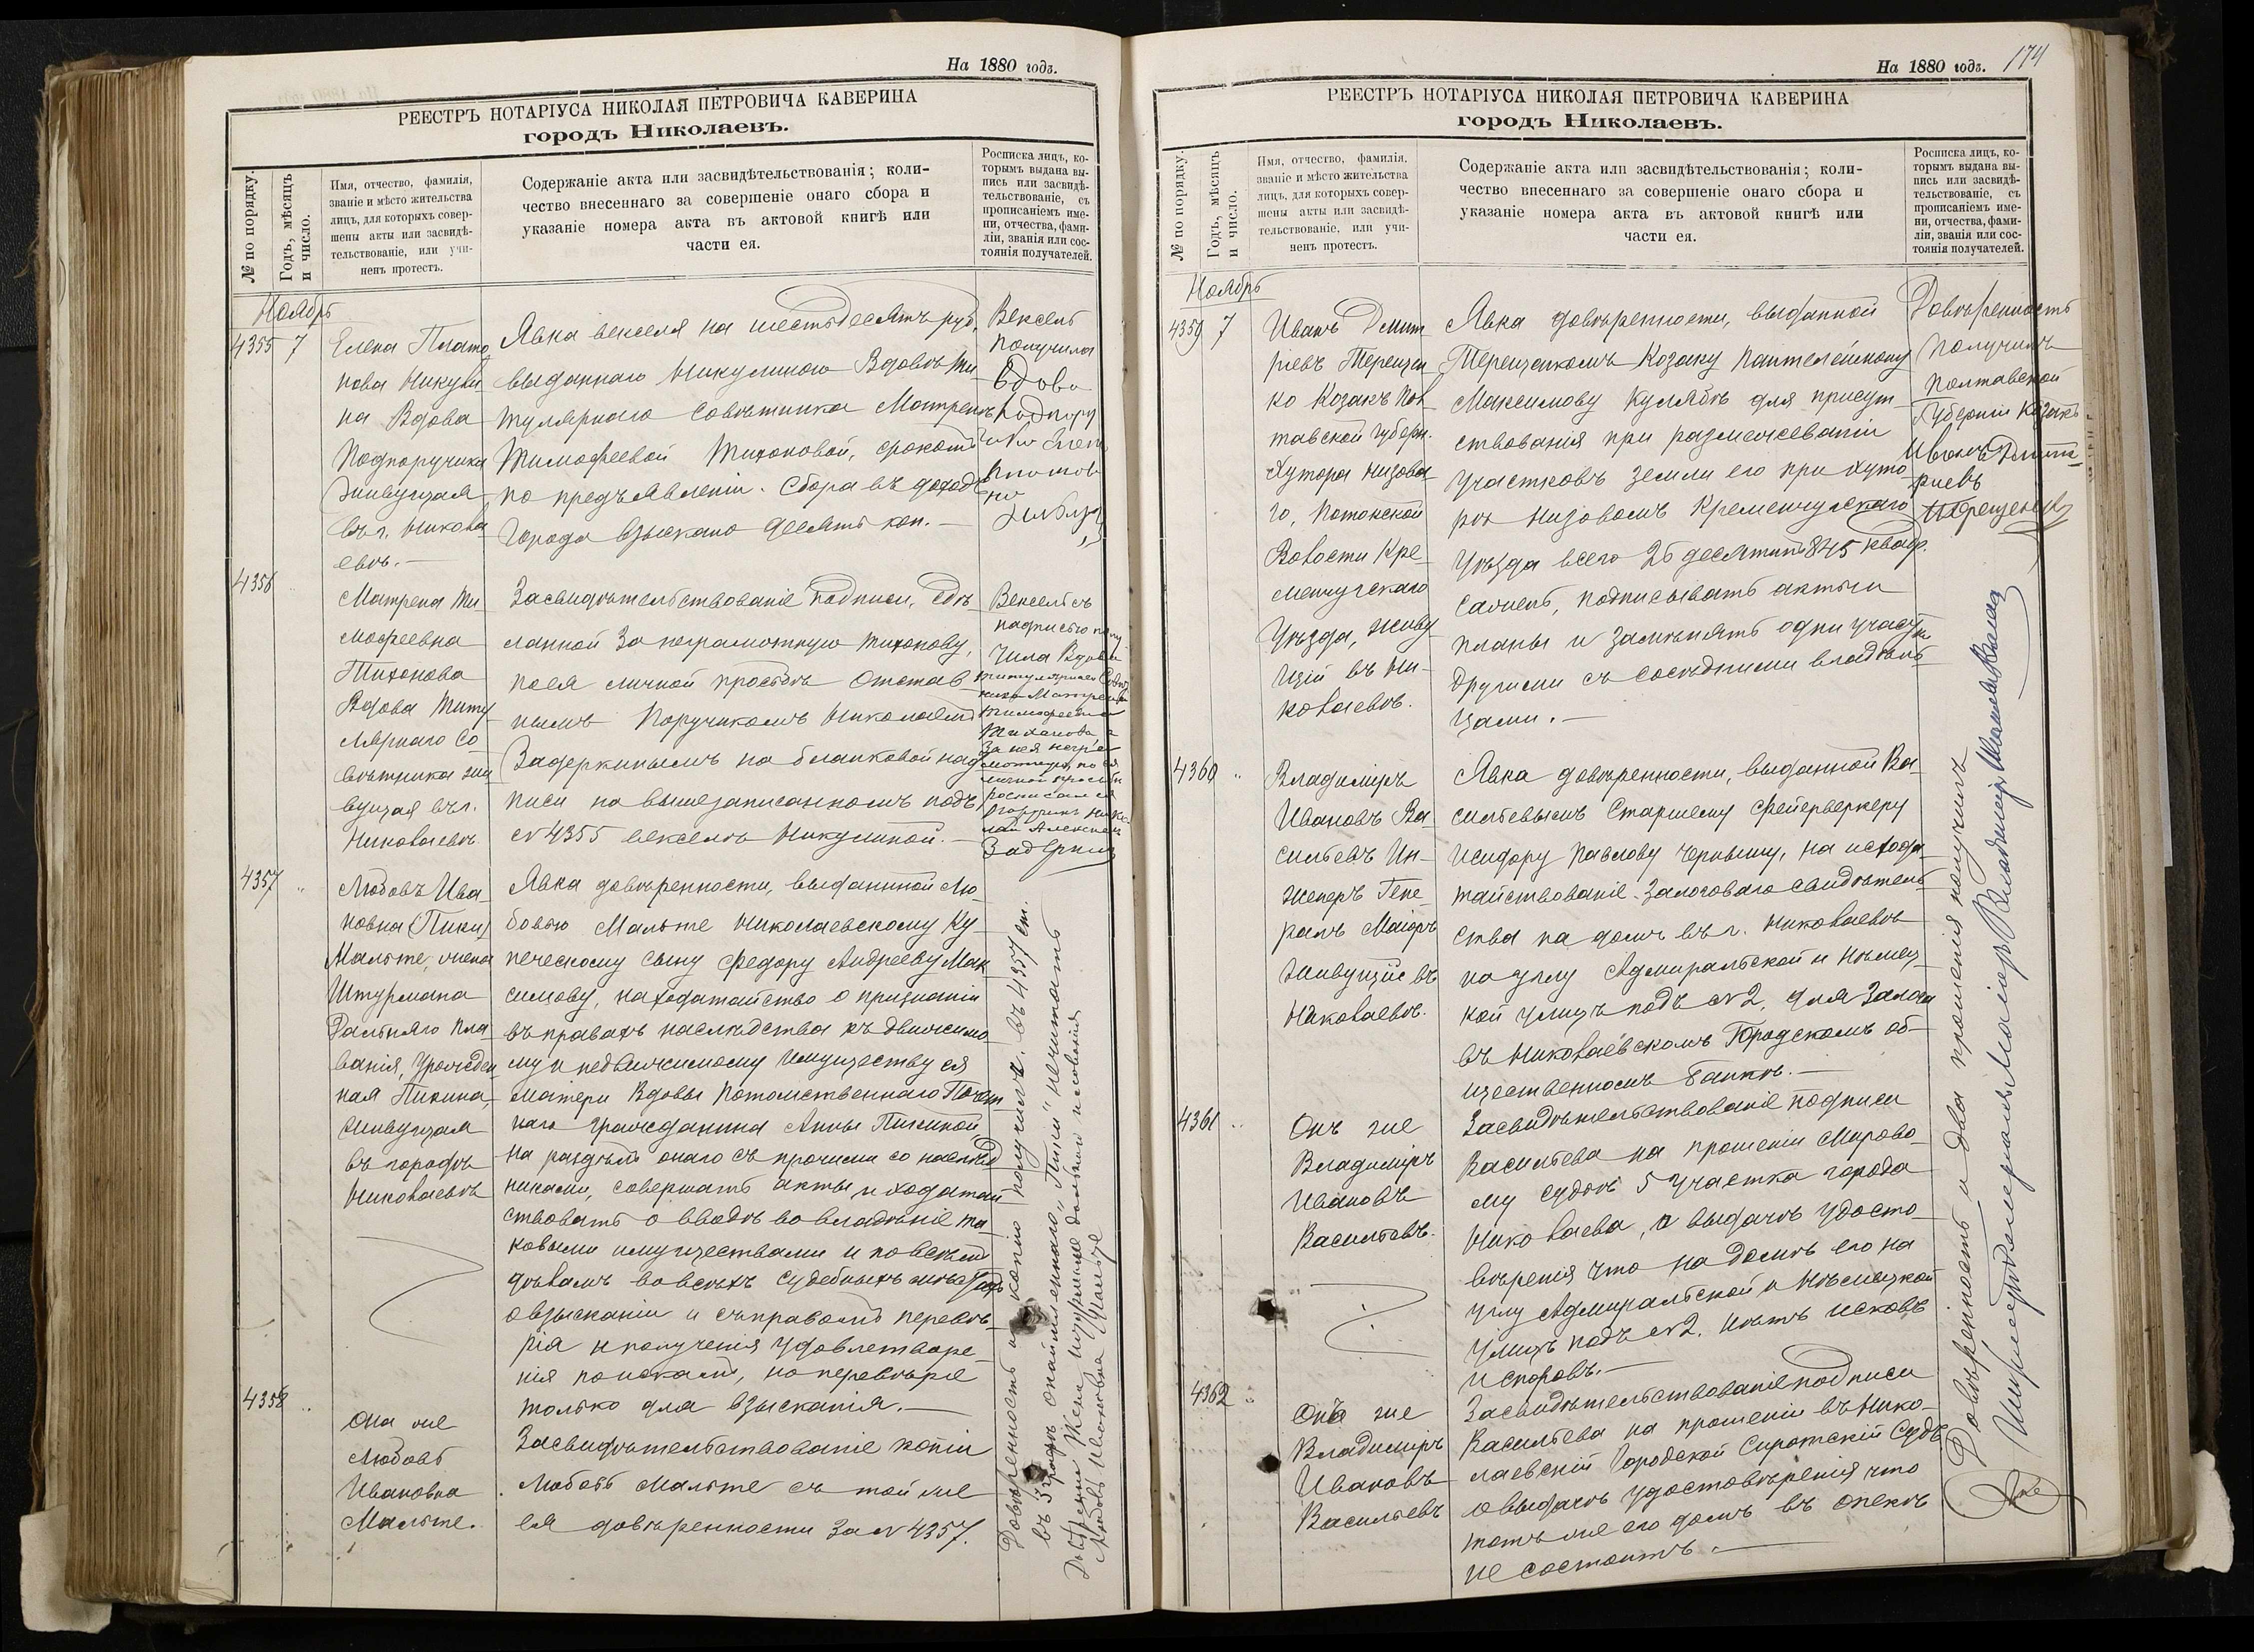 На 1880 годъ.
РЕЕСТРЪ НОТАРІУСА НИКОЛАЯ ПЕТРОВИЧА КАВЕРИНА
городъ Николаевъ.
№ по порядку.
Годъ, мѣсяцъ
и число.
Имя, отчество, фамилія,
званіе и мѣсто жительства
лицъ, для которыхъ совер-
шены акты или засвидѣ-
тельствованіе, или учи-
ненъ протестъ.
Содержаніе акта или засвидѣтельствованія; коли-
чество внесеннаго за совершеніе онаго сбора и
указаніе номера акта въ актовой книгѣ или
части ея.
Росписка лицъ, ко-
торымъ выдана вы-
пись или засвидѣ-
тельствованіе, съ
прописаніемъ име-
ни, отчества, фами-
ліи, званія или сос-
тоянія получателей.
Ноябрь
4355 7
Елена Плато
нова Никули
на Вдова
Подпоручика
живущая
въ г. Никола
евѣ.—
Явка векселя на шестьдесятъ руб.
выданнаго Никулиною Вдовѣ Ти
тулярнаго Совѣтника Матренѣ
Тимофеевой Тихоновой, срокомъ
по предъявленіи. Сбора въ доходъ
города взыскано десять коп.—
Вексель
получила
Вдова
4356
Матрена Ти
мофеевна
Тихонова
Вдова Титу
лярнаго Со
вѣтника жи
вущая въ г.
Николаевѣ
Засвидѣтельствованіе подписи, сдѣ
ланной за неграмотную Тихонову,
по ея личной просьбѣ Отстав
нымъ Поручикомъ Николаемъ
Задеркинымъ на бланковой над
писи на вышезаписанномъ подъ
№ 4355 векселѣ Никулиной.—
Вексель съ
надписью полу
чила Вдова
Титулярнаго Совѣт
ника Матрена
Тимофеевна
Тихонова, а
за нея негра
мотную, по ея
личной просьбѣ
росписался
Поручикъ Нико
лай Алексеевъ
4357 „
Любовь Ива
новна (Пики)
Мальте, жена
Штурмана
Дальняго Пла
ванія, Урожден
ная Пикина,
живущая
въ городѣ
Николаевѣ
Явка довѣренности, выданной Лю
бовью Мальте Николаевскому Ку
печескому сыну Федору Андрееву Мак
симову, на ходатайство о признаніи
въ правахъ наслѣдства къ движимо
му и недвижимому имуществу ея
матери Вдовы Потомственнаго Почет
наго Гражданина Анны Пикиной
на раздѣлъ онаго съ прочими со наслѣд
никами, совершать акты и ходатай
ствовать о вводѣ во владѣніе та
ковыми имуществами и по всѣмъ
дѣламъ во всѣхъ судебныхъ мѣстахъ
о взысканіи и съ правомъ перевѣ
рія и полученія удовлетворе
нія по искамъ, но перевѣріе
только для взысканія.—
4358 „
Она же
Любовь
Ивановна
Мальте.
Засвидѣтельствованіе копіи
Любовь Мальте съ той же
ея довѣренности за № 4357.
Довѣренность и копію получила. Въ 4357 ст.
На 1880 годъ.
174
РЕЕСТРЪ НОТАРІУСА НИКОЛАЯ ПЕТРОВИЧА КАВЕРИНА
городъ Николаевъ.
№ по порядку.
Годъ, мѣсяцъ
и число.
Имя, отчество, фамилія,
званіе и мѣсто жительства
лицъ, для которыхъ совер-
шены акты или засвидѣ-
тельствованіе, или учи-
ненъ протестъ.
Содержаніе акта или засвидѣтельствованія; коли-
чество внесеннаго за совершеніе онаго сбора и
указаніе номера акта въ актовой книгѣ или
части ея.
Росписка лицъ, ко-
торымъ выдана вы-
пись или засвидѣ-
тельствованіе, съ
прописаніемъ име-
ни, отчества, фами-
ліи, званія или сос-
тоянія получателей.
Ноябрь
4359 7
Иванъ Дмит
ріевъ Терещен
ко Козакъ Пол
тавской губерн.
Хутора Низова
го, Потокской
Волости Кре
менчугскаго
Уѣзда, живу
щій въ Ни-
колаевѣ.
Явка довѣренности, выданной
Терещенкомъ Козаку Пантелеймону
Максимову Кулябкѣ для присут
ствованія при размежеваніи
участковъ земли его при хуто
рѣ Низовомъ Кременчугскаго
Уѣзда всего 26 десятинъ 845 квадр.
сажень, подписывать акты и
планы и замѣнять одни участки
другими съ сосѣдними владѣль
цами.—
Довѣренность
получилъ
Полтавской
Губерніи Козакъ
Иванъ Дмит
ріевъ
Терещенко
4360 „
Владиміръ
Ивановъ Ва
сильевъ Ин-
женеръ Гене-
ралъ Маіоръ
живущій въ
Николаевѣ.
Явка довѣренности, выданной Ва-
сильевымъ Старшему Фейерверкеру
Исидору Павлову Чернышу, на исхода
тайствованіе залоговаго свидѣтель
ства на домъ въ г. Николаевѣ
на углу Адмиральской и Нѣмец
кой улицъ подъ № 2, для залога
въ Николаевскомъ Городскомъ об-
щественномъ Банкѣ.—
4361 „
Онъ же
Владиміръ
Ивановъ
Васильевъ.
Засвидѣтельствованіе подписи
Васильева на прошеніи Мирово-
му Судьѣ 5 участка города
Николаева, о выдачѣ удосто-
вѣренія что на домѣ его на
углу Адмиральской и Нѣмецкой
улицъ подъ № 2. нѣтъ исковъ
и споровъ.—
4362 „
Онъ же
Владиміръ
Ивановъ
Васильевъ
Засвидѣтельствованіе подписи
Васильева на прошеніи въ Нико-
лаевскій Городской Сиротскій Судъ
о выдачѣ удостовѣренія что
тотъ же его домъ въ опекѣ
не состоитъ.—
Довѣренность и два прошенія получилъ